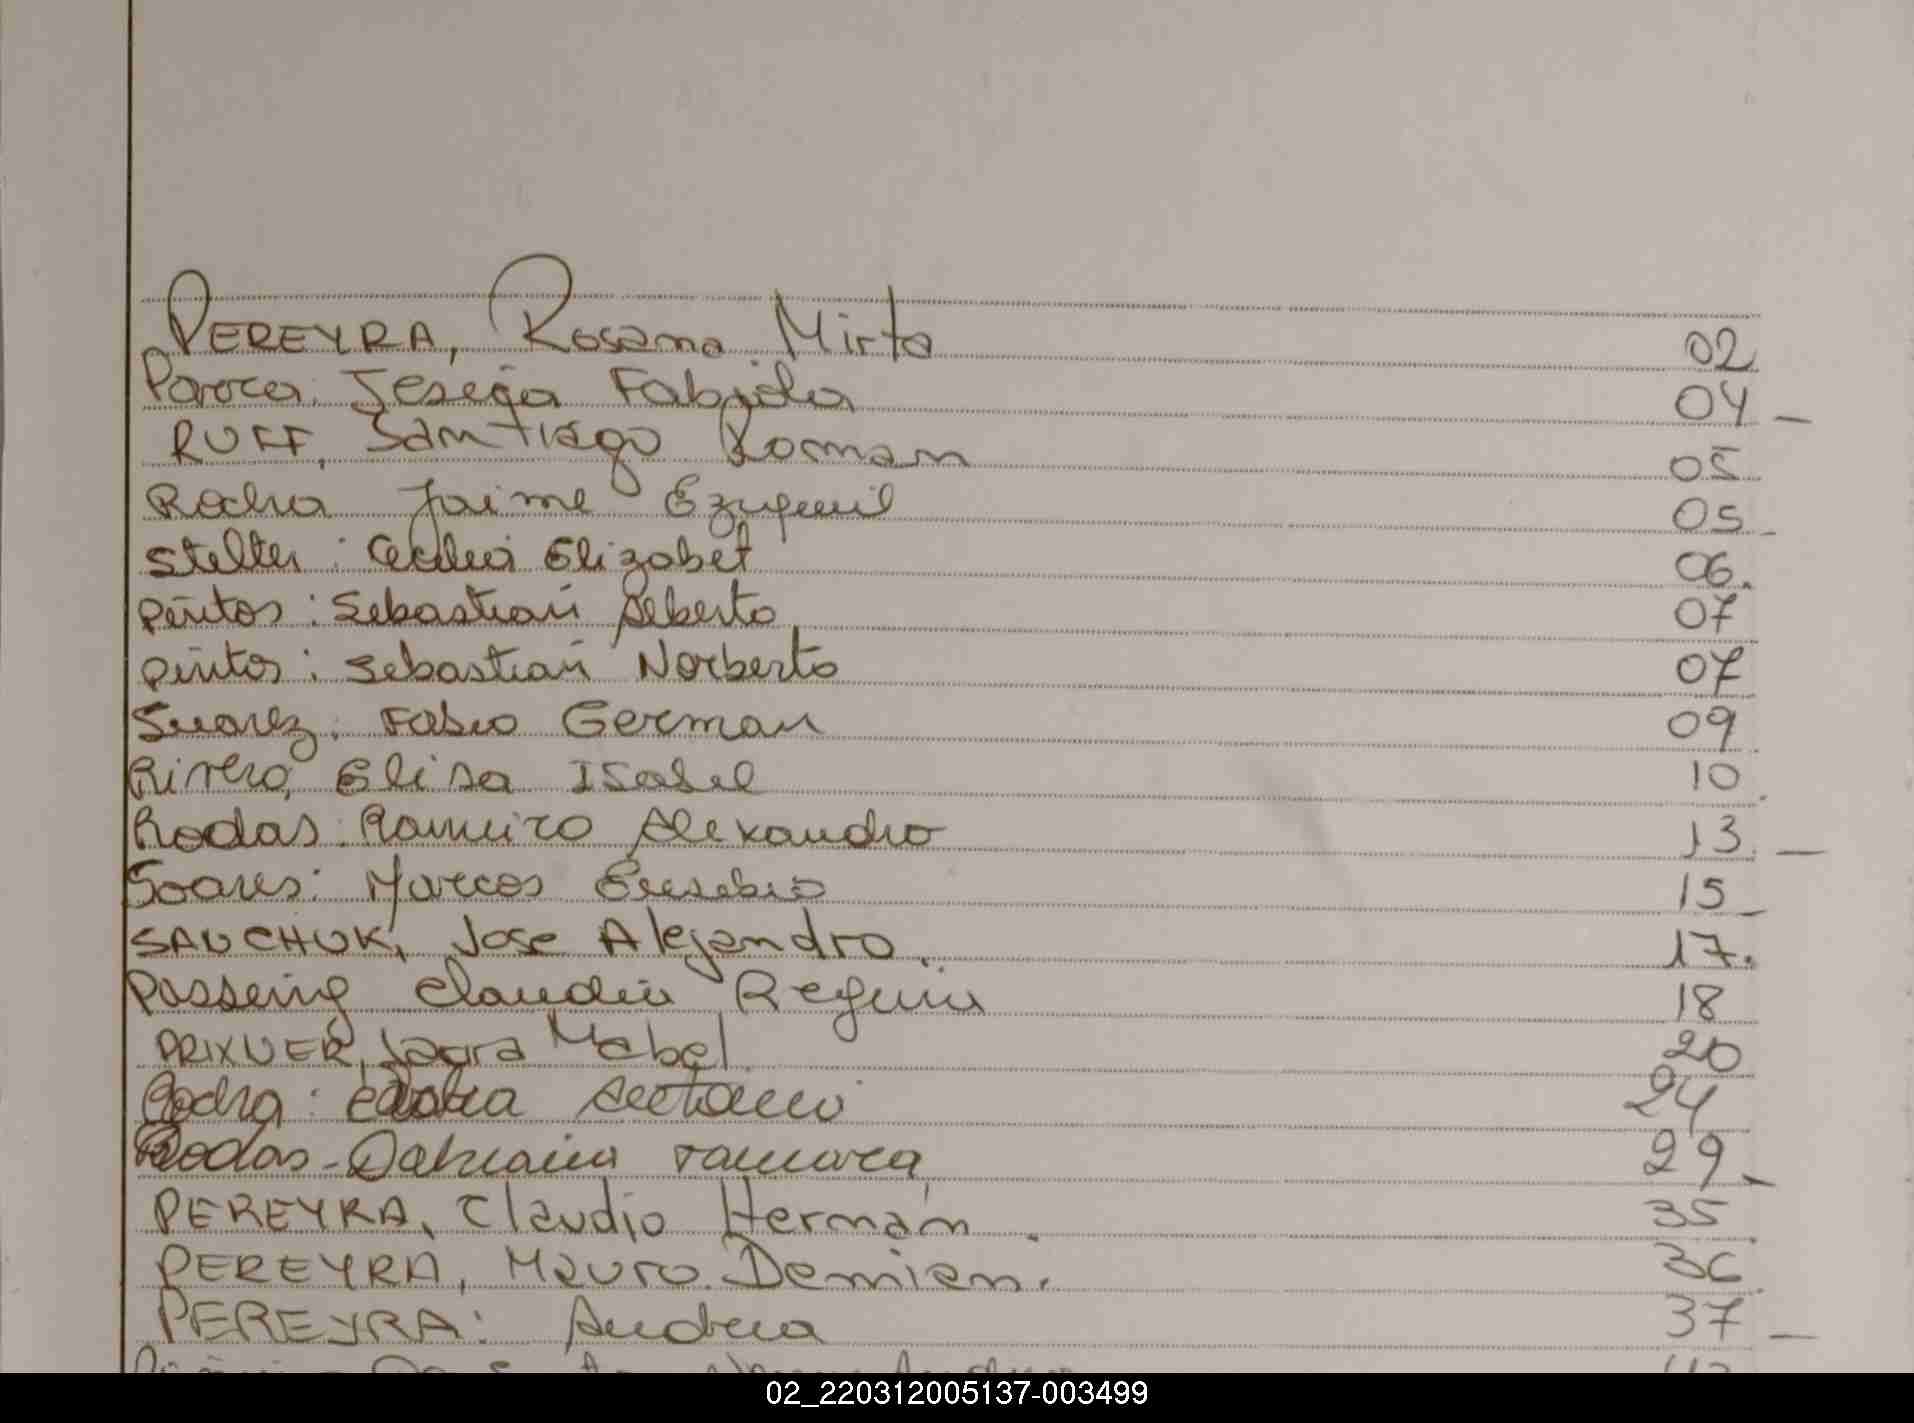 PEREYRA, Rosana Mirta 02
Jesica Fabiola 04 -
RUFF, Santiago Roman 05
Rocha Jaime Ezequiel 05 -
Stelter: Cecilia Elizabet 06.
pintos: Sebastian Alberto 07
pintos: Sebastian Norberto 07
Suarez: Fabio German 09
Rivero, Elisa Isabel 10.
Rodas: Ramiro Alexandro 13. -
Soares: Marcos Eusebio 15 -
SAUCHUK, Jose Alejandro. 17.
Posseing Claudia Regina 18
PRIXNER, Mabel. 20
Antonio 24
Rodas - tamara 29 -
PEREYRA, Claudio Hernán. 35
PEREYRA, Mauro Demian. 36
PEREYRA: Andrea 37 -
02_220312005137-003499